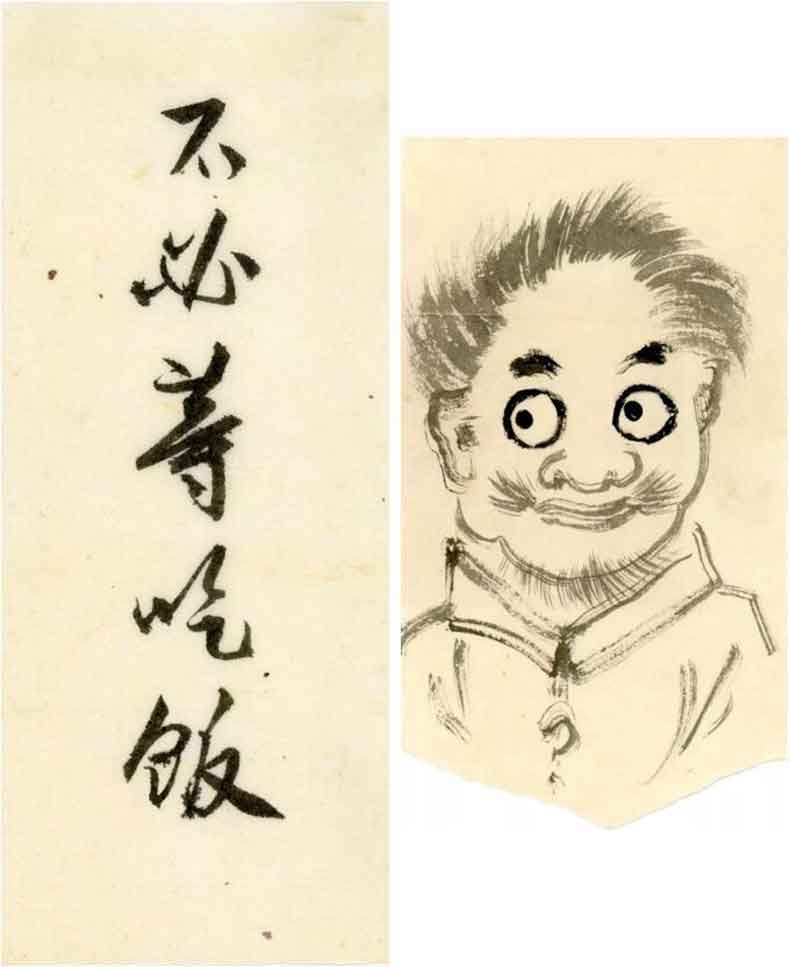 不必等吃饭